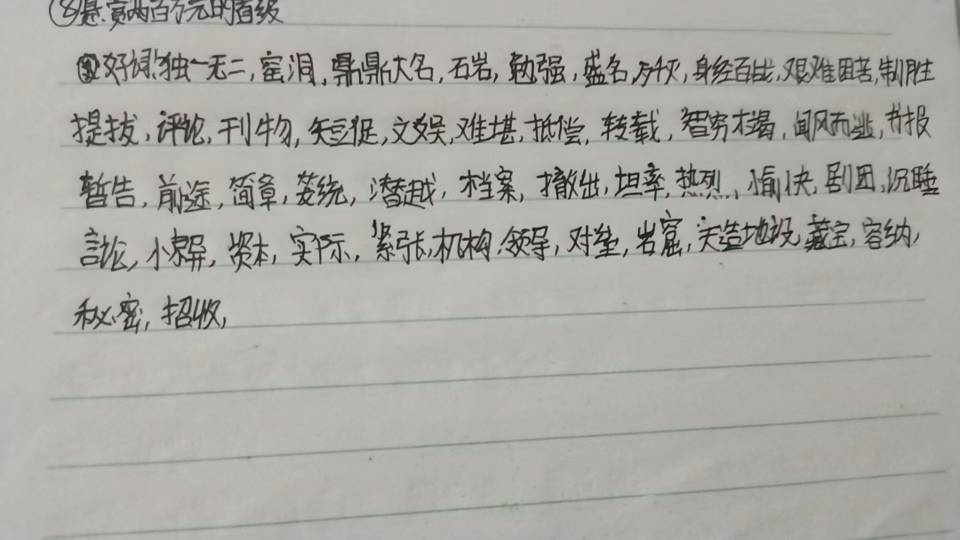 ⑧悬赏两百万元的首级
好词:独一无二,窑洞,鼎鼎大名,石岩,勉强,盛名,身经百战,艰难困苦,制胜
提拔,评论,刊物,短促,文娱,难堪,抵偿,转载,智穷才竭,闻风而逃,书报
暂告,前途,简章,笼统,潜越,档案,撤出,坦率,热烈,愉快,剧团,沉睡
言论,小屏,资本,实际,紧张,机构,领导,对垒,岩窟,天造地设,藏宝,容纳,
秘密,招收,